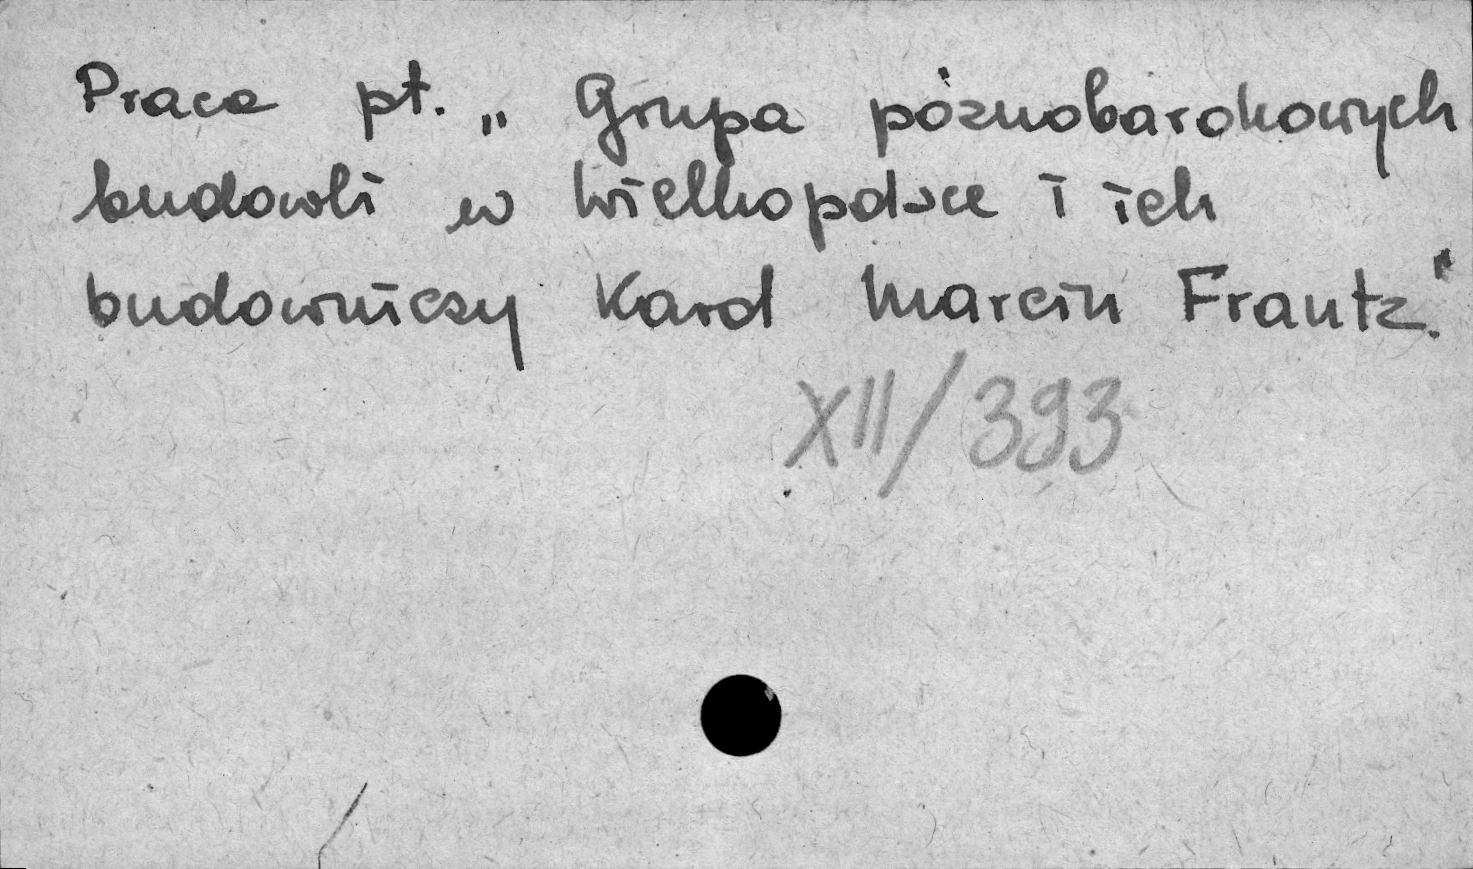 Praca pt. „Grupa póznobarokowych
budowli w Wielkopolsce i ich
budowniczy Karol Marcin Frantz."
XII/393